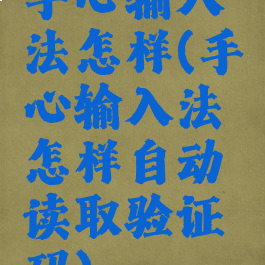 手心输入
法怎样(手
心输入法
怎样自动
读取验证
码)